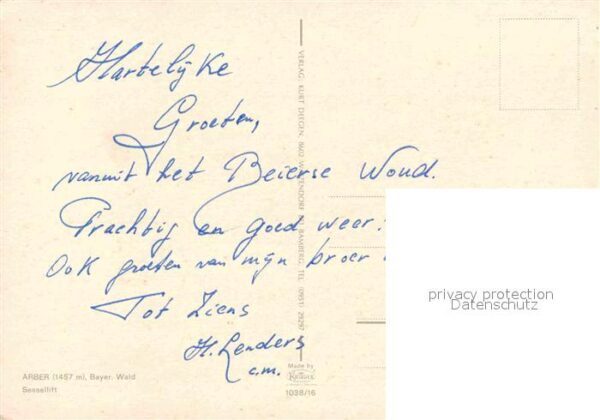 Hartelijke
Groeten,
vanuit het Beierse Woud.
Prachtig en goed weer.
Ook groeten van mijn broer
Tot Ziens
H. Lenders
c.m.
VERLAG: KURT DIEGEN, BAMBERG, TEL. (0951) 29297
privacy protection
Datenschutz
ARBER (1457 m), Bayer. Wald
Sessellift
Made by
KRÜGER
1038/16